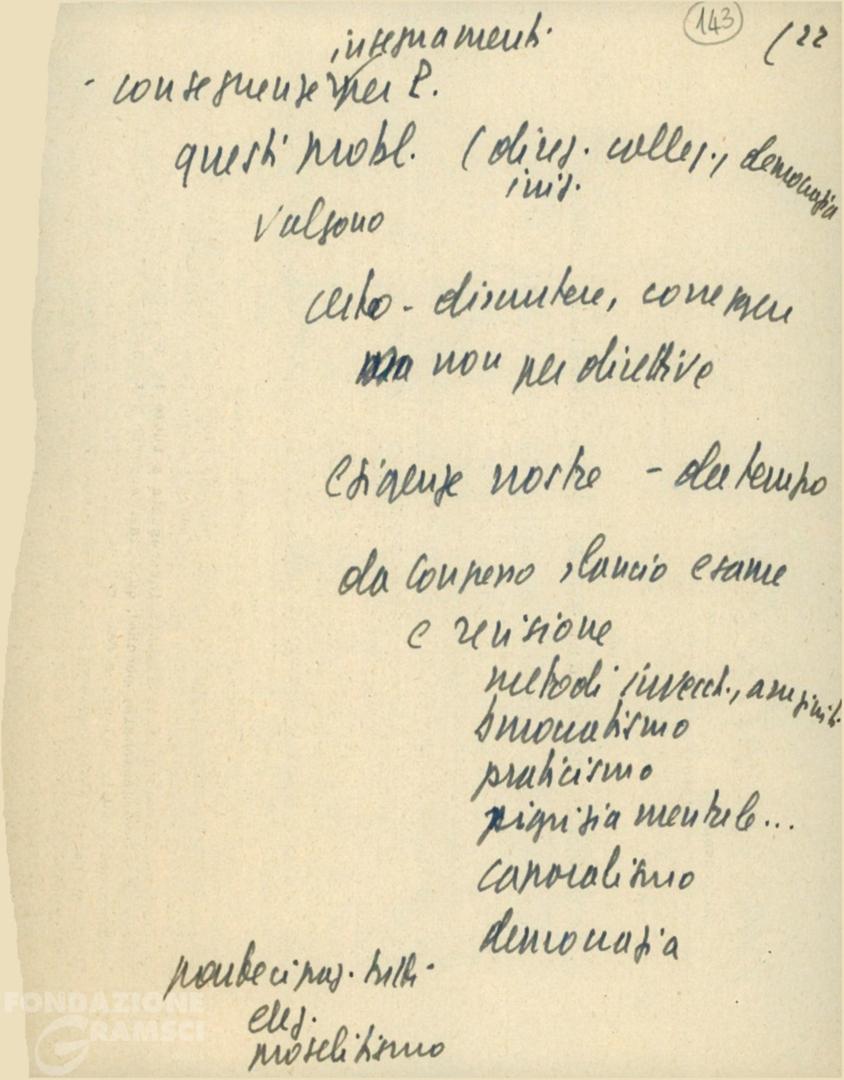 143
(22
insegnamenti
- conseguenze per P.
questi probl. (direz. colleg., democrazia
iniz.
valgono
certo - discutere, correggere
ma non per direttive
esigenze nostre - da tempo
da Congresso slancio esame
e revisione
metodi invecch.,
burocratismo
praticismo
pigrizia mentale...
caporalismo
democrazia
partecipaz. tutti
elez.
proselitismo
FONDAZIONE
GRAMSCI